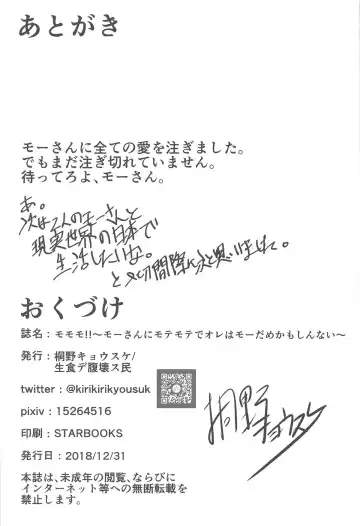 あとがき
モーさんに全ての愛を注ぎました。
でもまだ注ぎ切れていません。
待ってろよ、モーさん。
あ。
次は2人のモーさんと
現実世界の日本で
生活したいな。
と〆切間際に思いまして。
おくづけ
誌名：モモモ!!〜モーさんにモテモテでオレはモーだめかもしんない〜
発行：桐野キョウスケ/
生食デ腹壊ス民
twitter：@kirikirikyousuk
pixiv：15264516
印刷：STARBOOKS
発行日：2018/12/31
桐野キョウスケ
本誌は、未成年の閲覧、ならびに
インターネット等への無断転載を
禁止します。